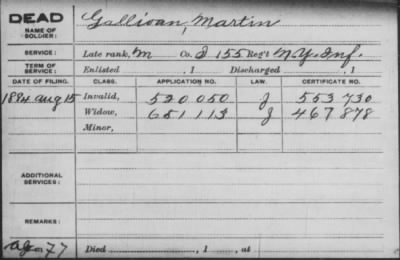 DEAD
NAME OF SOLDIER: Gallivan, Martin
SERVICE: Late rank, Co. I 155 Reg't N.Y. Inf.
TERM OF SERVICE: Enlisted , 1 Discharged , 1
DATE OF FILING. CLASS. APPLICATION NO. LAW. CERTIFICATE NO.
1884 Aug 15 Invalid, 520 050 J 553 730
Widow, 651 113 J 467 878
Minor,
ADDITIONAL SERVICES:
REMARKS:
77 Died , 1 , at